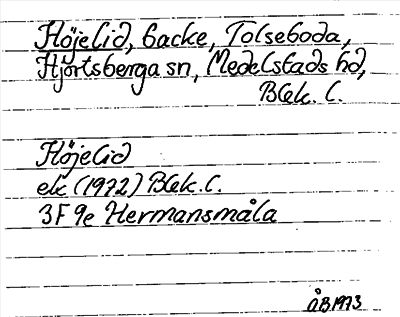 Höjelid, backe, Tolseboda,
Hjortsberga sn, Medelstads hd,
Blek. l.
Höjelid
ek (1972) Blek. l.
3F 9e Hermansmåla
ÅB 1973